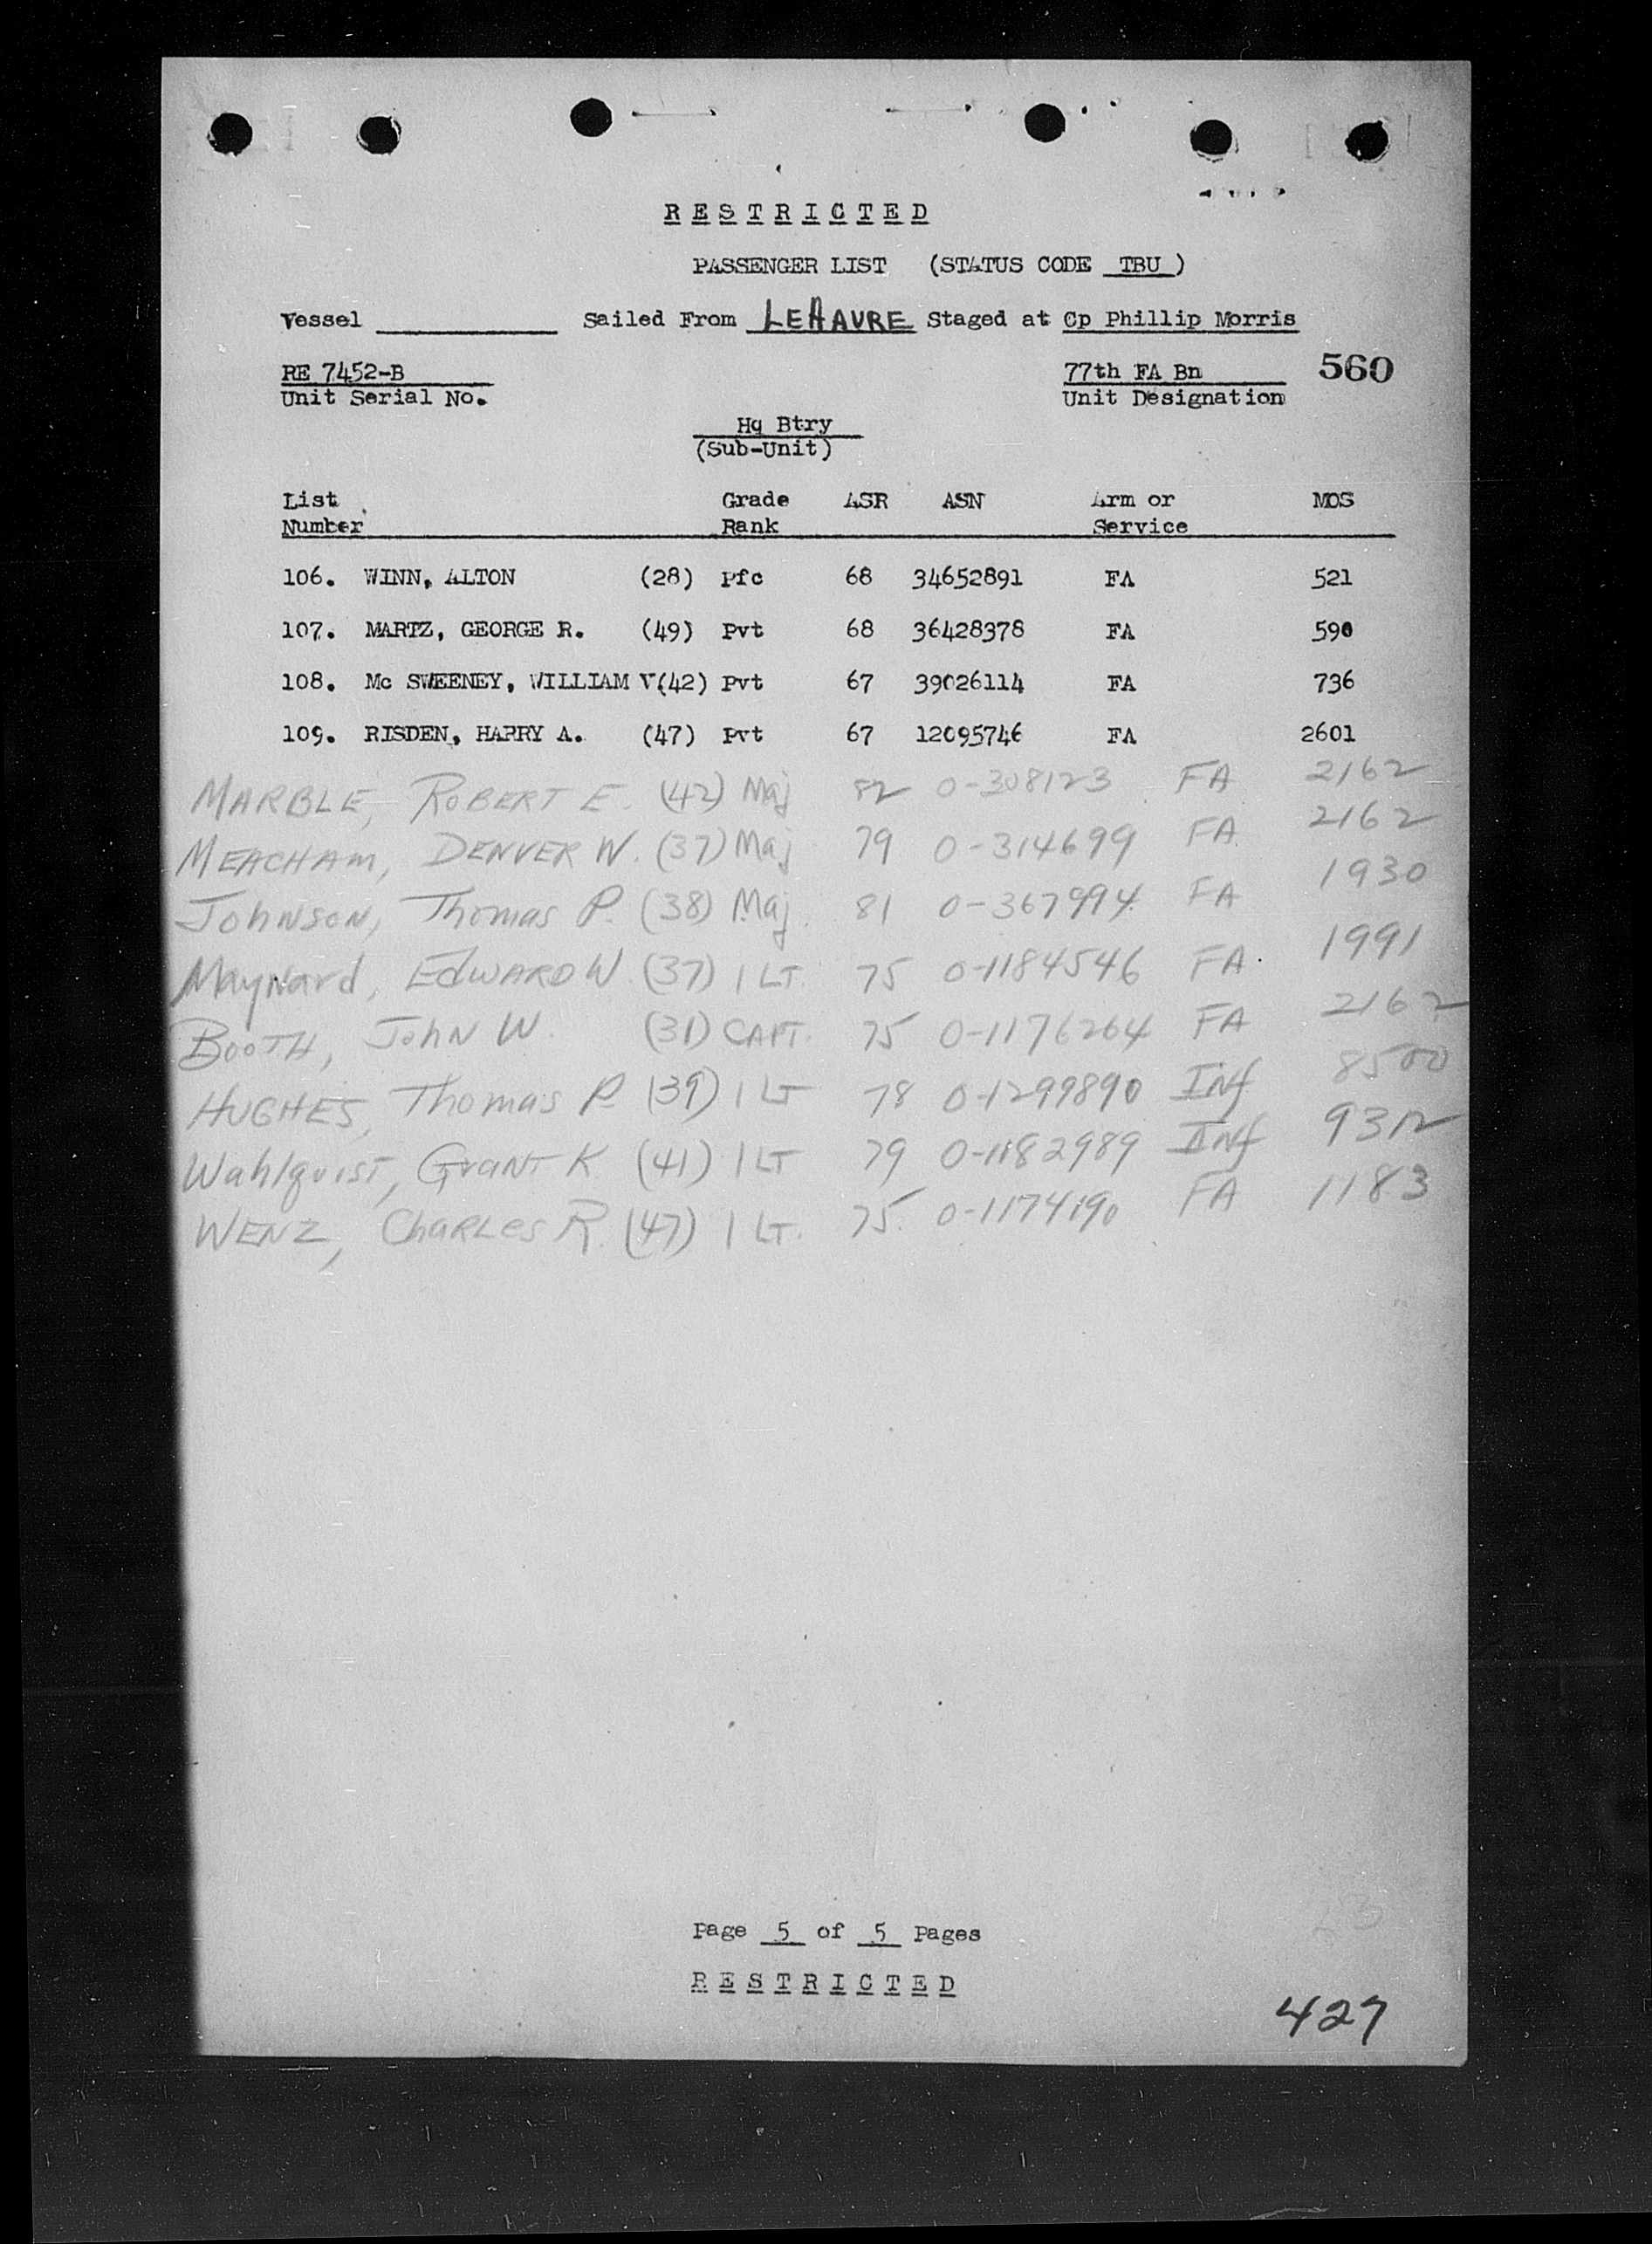 RESTRICTED
PASSENGER LIST (STATUS CODE TBU )
Vessel Sailed From LEHAVRE Staged at Cp Phillip Morris
RE 7452-B 77th FA Bn 560
Unit Serial No. Unit Designation
Hq Btry
(Sub-Unit)
List Grade ASR ASN Arm or MOS
Number Rank Service
106. WINN, ALTON (28) Pfc 68 34652891 FA 521
107. MARTZ, GEORGE R. (49) Pvt 68 36428378 FA 590
108. Mc SWEENEY, WILLIAM V(42) Pvt 67 39026114 FA 736
109. RISDEN, HARRY A. (47) Pvt 67 12095746 FA 2601
MARBLE, ROBERT E. (42) Maj 82 0-308123 FA 2162
MEACHAM, DENVER W. (37) Maj 79 0-314699 FA 2162
Johnson, Thomas P. (38) Maj. 81 0-367994 FA 1930
Maynard, EDWARD W. (37) 1 LT. 75 0-1184546 FA. 1991
BOOTH, John W. (31) CAPT. 75 0-1176264 FA 2162
HUGHES, Thomas P. (39) 1 LT 78 0-1299890 Inf 8500
Wahlquist, Grant K (41) 1 LT 79 0-1182989 Inf 9312
WENZ, Charles R. (47) 1 LT. 75. 0-1174190 FA 1183
Page 5 of 5 Pages
RESTRICTED
427